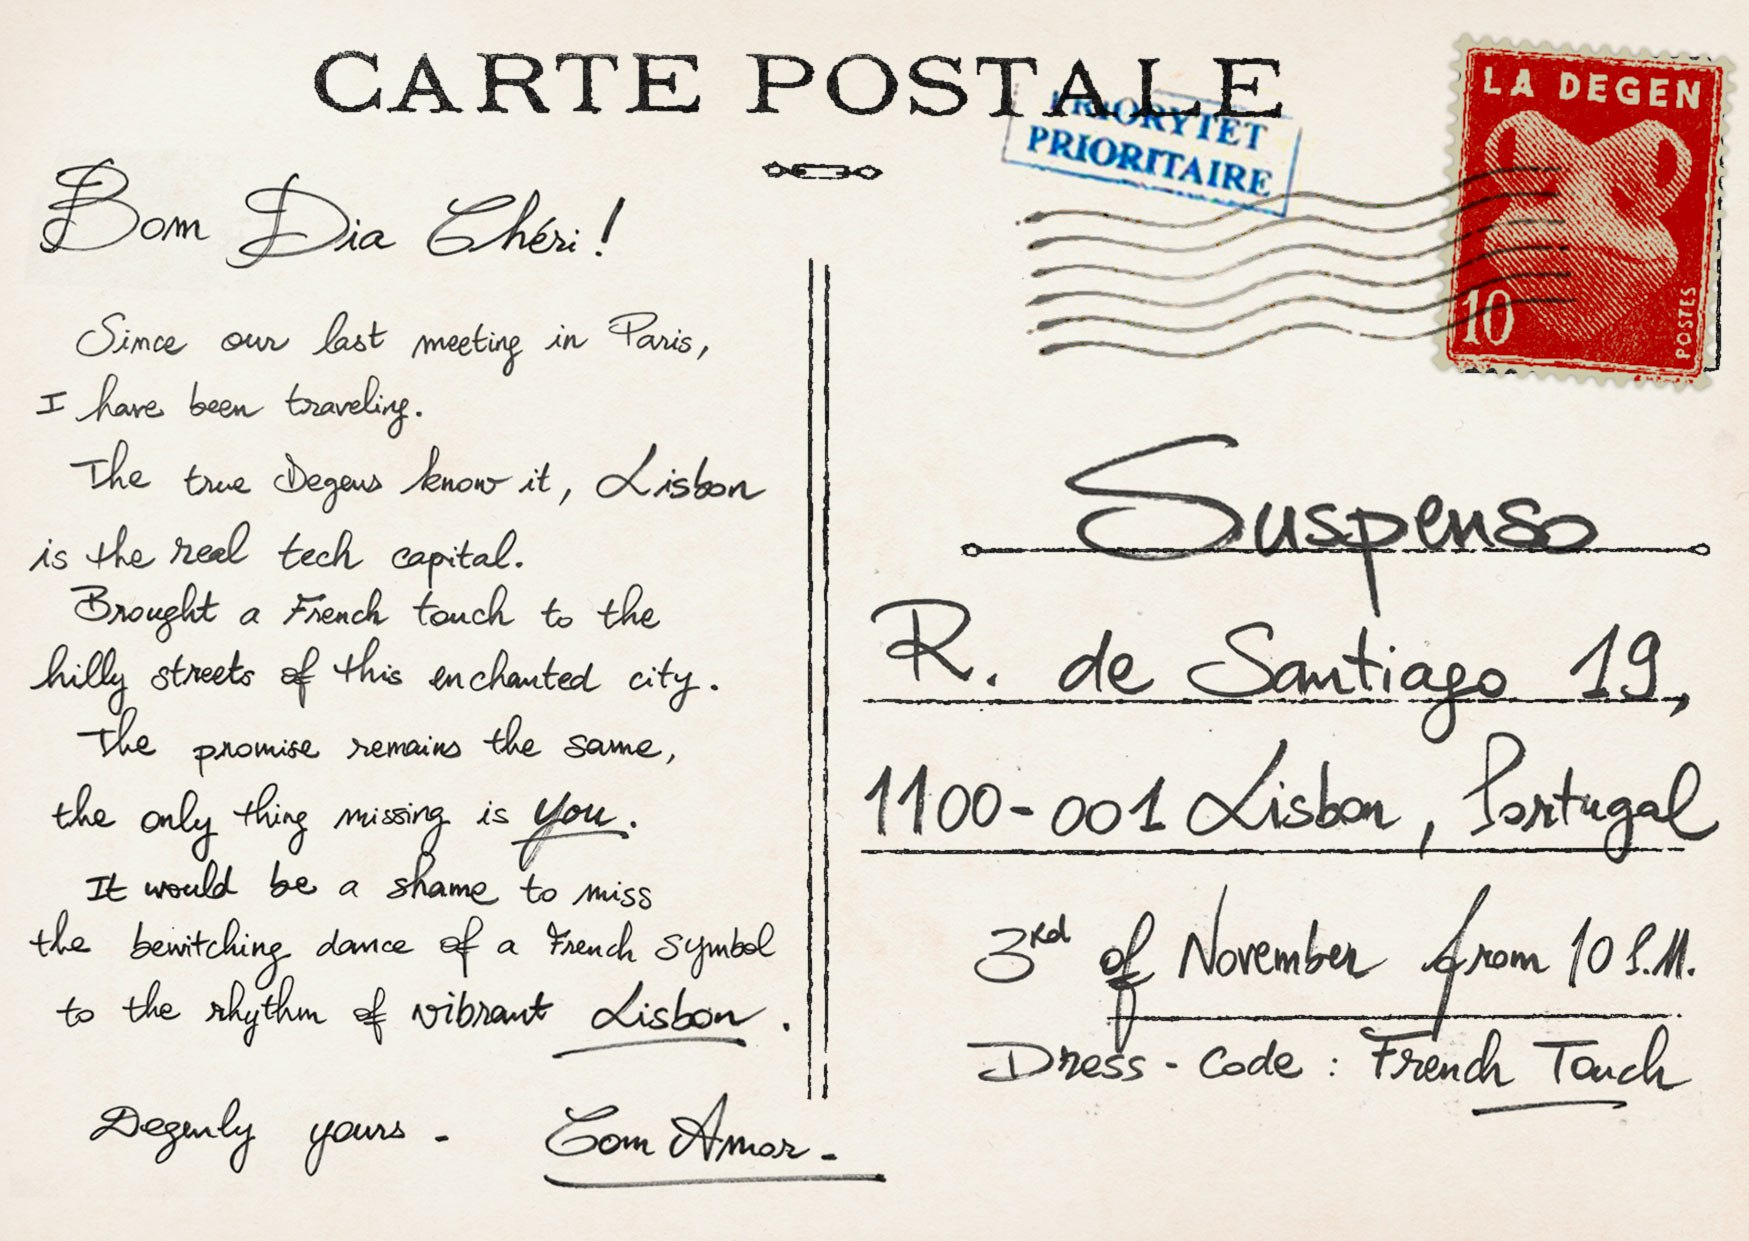 CARTE POSTALE
PRIORYTET
PRIORITAIRE
LA DEGEN
10
POSTES
Bom Dia Chéri !
Since our last meeting in Paris,
I have been traveling.
The true Degens know it, Lisbon
is the real tech capital.
Brought a French touch to the
hilly streets of this enchanted city.
The promise remains the same,
the only thing missing is you.
It would be a shame to miss
the bewitching dance of a French symbol
to the rhythm of vibrant Lisbon.
Degenly yours - Com Amor -
Suspenso
R. de Santiago 19,
1100-001 Lisbon, Portugal
3rd of November from 10 P.M.
Dress-Code : French Touch